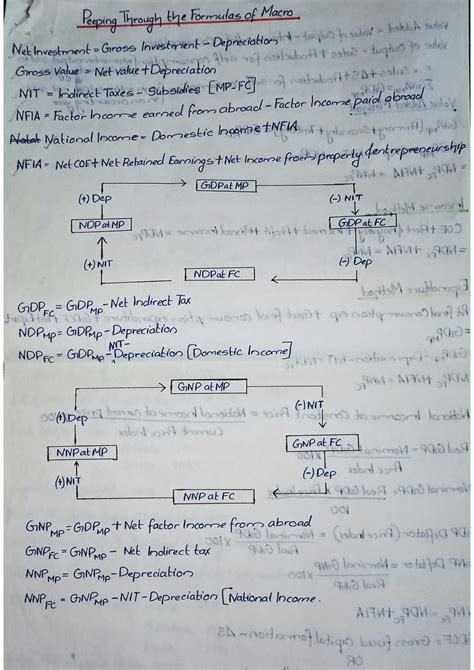 Peeping Through the Formulas of Macro
Net Investment = Gross Investment - Depreciation
Gross Value = Net value + Depreciation
NIT = Indirect Taxes - Subsidies [MP-FC]
NFIA = Factor Income earned from abroad - Factor Income paid abroad
National Income = Domestic Income + NFIA
NFIA = Net COE + Net Retained Earnings + Net Income from property & entrepreneurship
GDP at MP
(+) Dep
(-) NIT
NDP at MP
GDP at FC
(+) NIT
(-) Dep
NDP at FC
GDP FC = GDP MP - Net Indirect Tax
NDP MP = GDP MP - Depreciation
NDP FC = GDP MP - NIT - Depreciation [Domestic Income]
GNP at MP
(+) Dep
(-) NIT
NNP at MP
GNP at FC
(+) NIT
(-) Dep
NNP at FC
GNP MP = GDP MP + Net factor Income from abroad
GNP FC = GNP MP - Net Indirect tax
NNP MP = GNP MP - Depreciation
NNP FC = GNP MP - NIT - Depreciation [National Income.